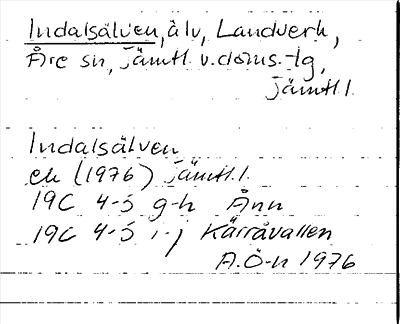 Indalsälven, älv, Landverk,
Åre sn, Jämtl. v. doms.-lg,
Jämtl. l.
Indalsälven
ek (1976) Jämtl. l.
19C 4-5 g-h Ånn
19C 4-5 i-j Kärråvallen
A.Ö-n 1976